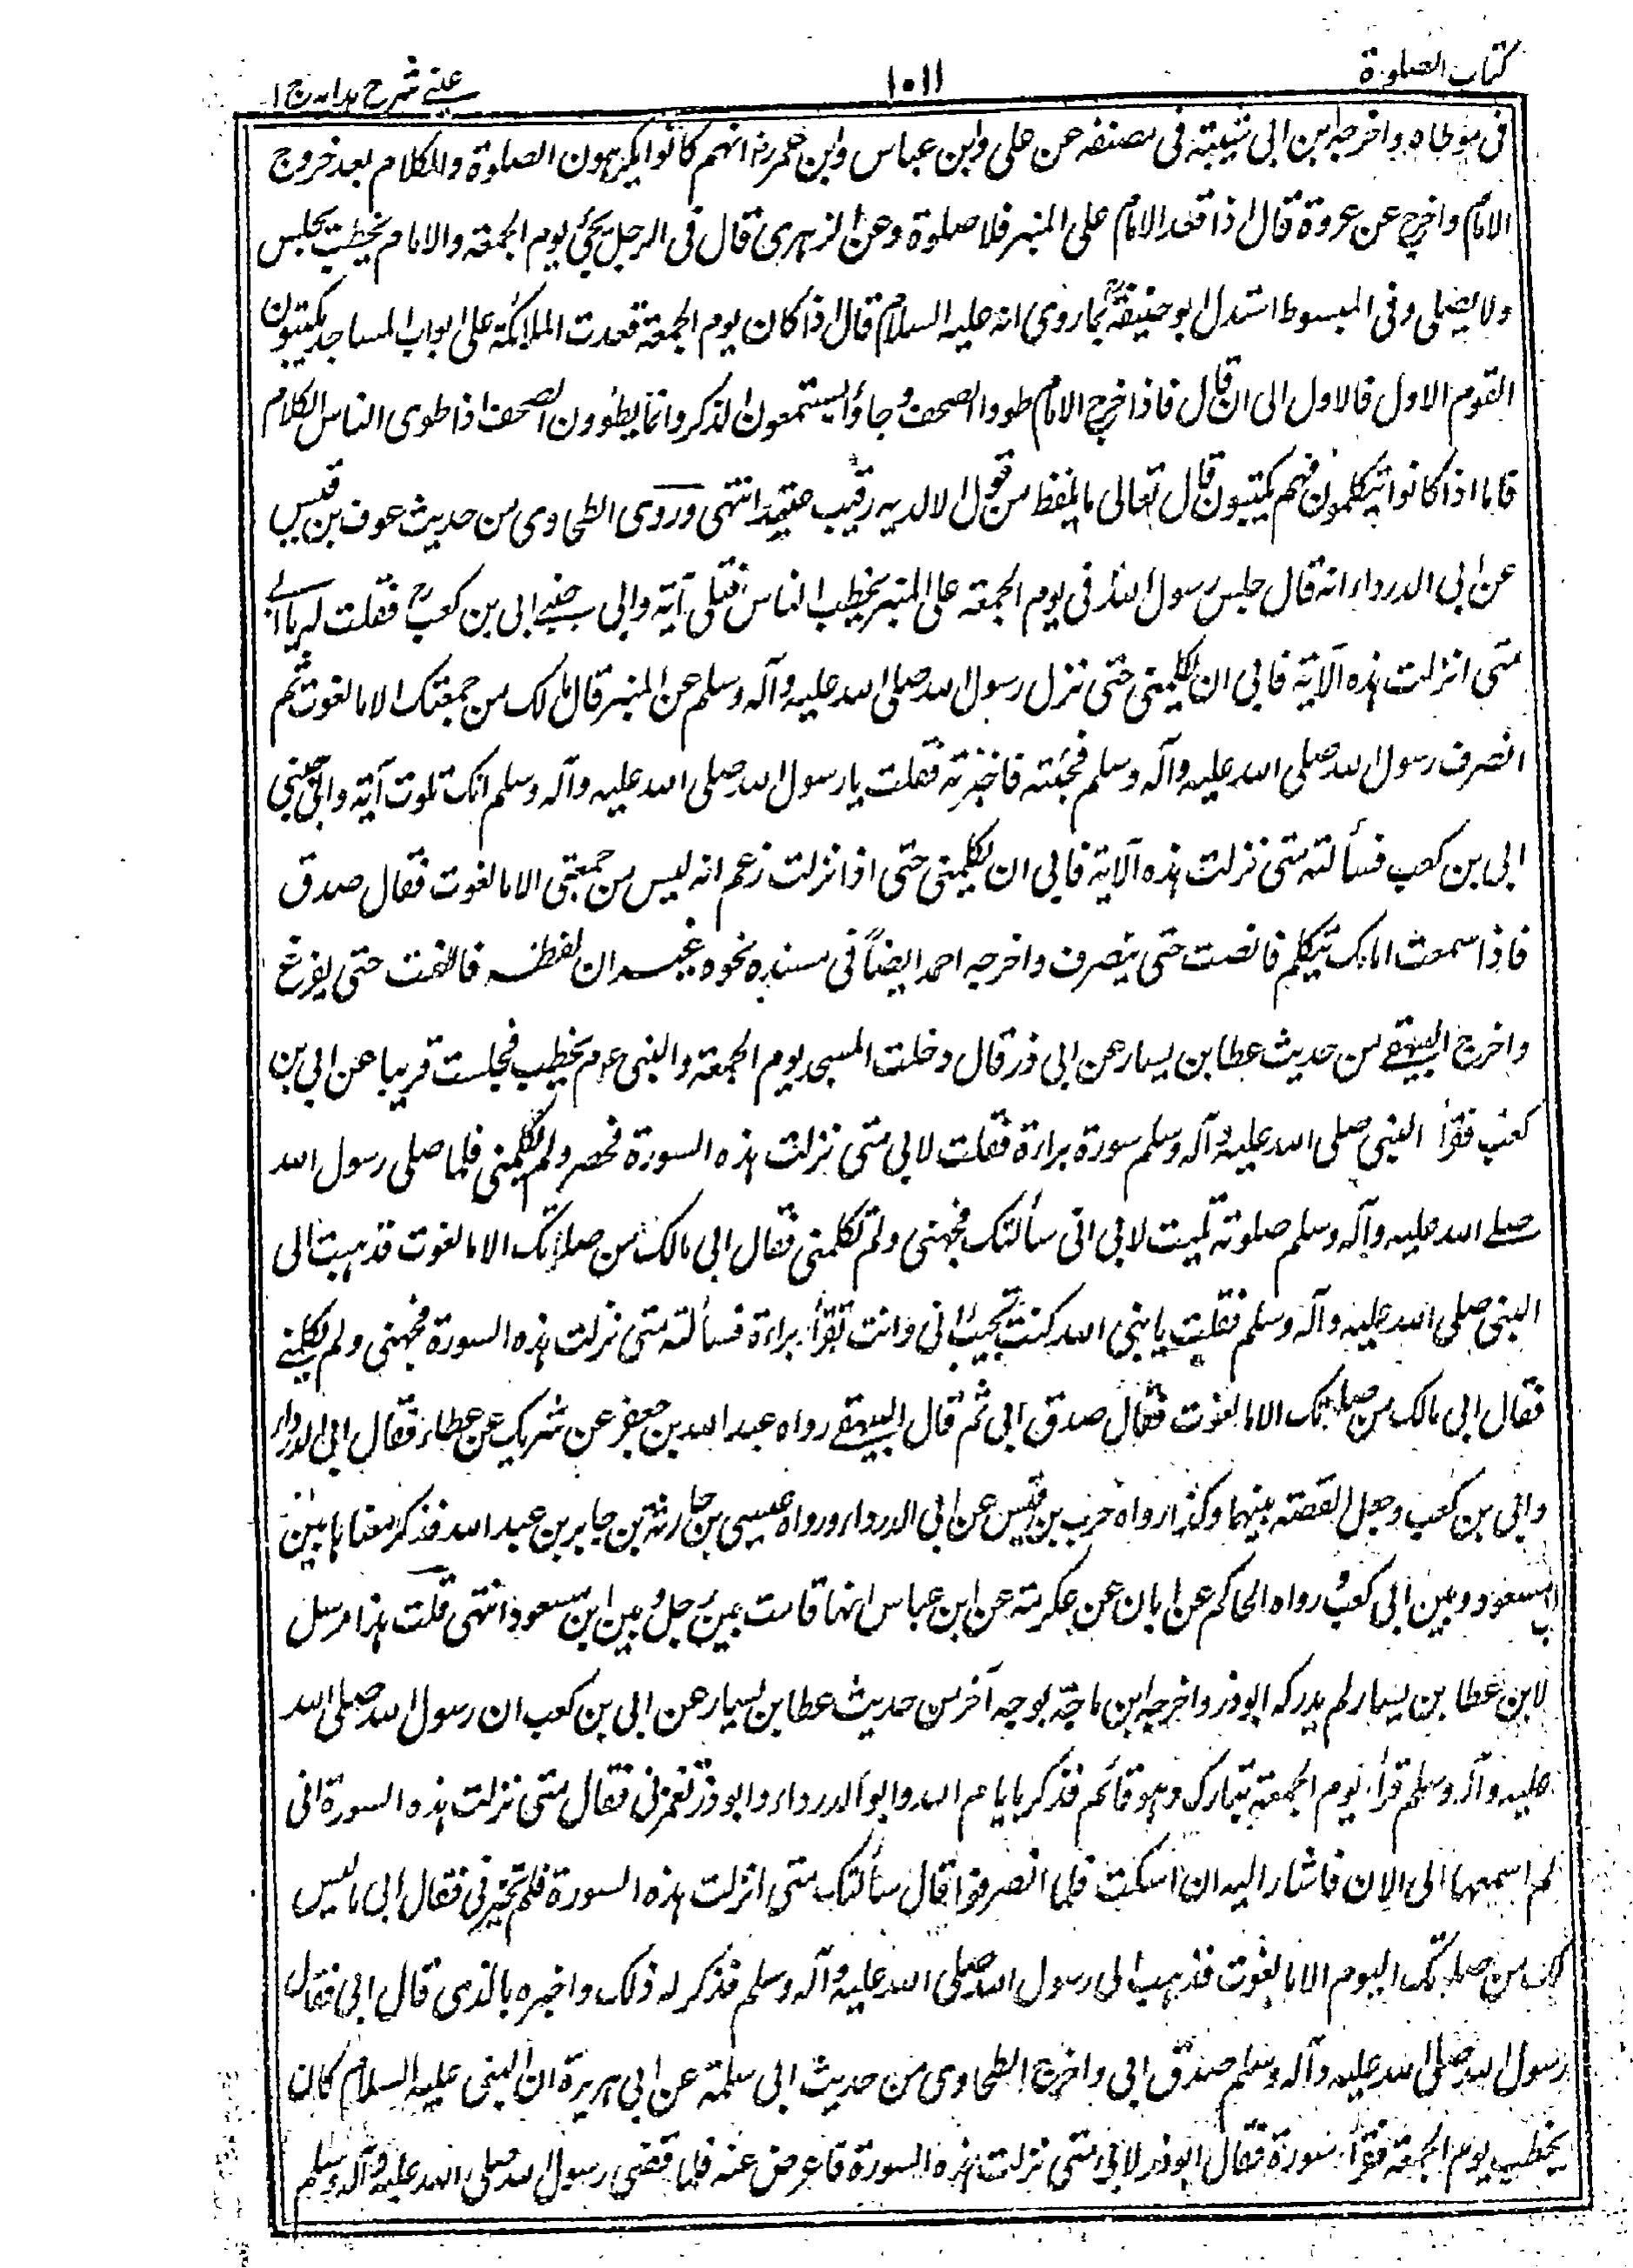 كتاب الصلوة
١٠١١
عينى شرح هدايه ج ١
فى موطاه واخرجه ابن ابى شيبة فى مصنفه عن على وابن عباس وابن عمر رض انهم كانوا يكرهون الصلوة والكلام بعد خروج
الامام واخرج عن عروة قال اذا قعد الامام على المنبر فلا صلوة وعن الزهرى قال فى الرجل يجئ يوم الجمعة والامام يخطب يجلس
ولا يصلى وفى المبسوط استدل ابو حنيفة بما روى انه عليه السلام قال اذا كان يوم الجمعة قعدت الملائكة على ابواب المساجد يكتبون
القوم الاول فالاول الى ان قال فاذا خرج الامام طووا الصحف وجاؤا يستمعون الذكر وانما يطوون الصحف اذا طوى الناس الكلام
فاما اذا كانوا يتكلمون فهم يكتبون قال تعالى ما يلفظ من قول الا لديه رقيب عتيد انتهى وروى الطحاوى من حديث عوف بن قيس
عن ابى الدرداء انه قال جلس رسول الله فى يوم الجمعة على المنبر يخطب الناس فتلى آية والى جنبى ابى بن كعب فقلت له يا ابى
متى انزلت هذه الآية فابى ان يكلمنى حتى نزل رسول الله صلى الله عليه وآله وسلم عن المنبر قال مالك من جمعتك الا ما لغوت ثم
انصرف رسول الله صلى الله عليه وآله وسلم فجئته فاخبرته فقلت يا رسول الله صلى الله عليه وآله وسلم انك تلوت آية والى جنبى
ابى بن كعب فسألته متى نزلت هذه الآية فابى ان يكلمنى حتى اذا نزلت زعم انه ليس من جمعتى الا ما لغوت فقال صدق
فاذا سمعت امامك يتكلم فانصت حتى ينصرف واخرجه احمد ايضاً فى مسنده نحوه غير ان لفظه فانصت حتى يفرغ
واخرج البيهقى من حديث عطا بن يسار عن ابى ذر قال دخلت المسجد يوم الجمعة والنبى عم يخطب فجلست قريبا عن ابى بن
كعب فقرأ النبى صلى الله عليه وآله وسلم سورة براءة فقلت لابى متى نزلت هذه السورة فحصر ولم يكلمنى فلما صلى رسول الله
صلى الله عليه وآله وسلم صلوته قلت لابى انى سألتك فجبهتنى ولم تكلمنى فقال ابى مالك من صلاتك الا ما لغوت فذهبت الى
النبى صلى الله عليه وآله وسلم فقلت يا نبى الله كنت بجنب ابى وانت تقرأ براءة فسألته متى نزلت هذه السورة فجبهنى ولم يكلمنى
فقال ابى مالك من صلاتك الا ما لغوت فقال صدق ابى ثم قال البيهقى رواه عبد الله بن جعفر عن شريك عن عطاء فقال ابى الدرداء
وابى بن كعب وجعل القصة بينهما وكذا رواه حرب بن قيس عن ابى الدرداء ورواه عيسى بن جارية بن جابر بن عبد الله فذكر معناها بين
ابن مسعود وبين ابى كعب ورواه الحاكم عن ابان عن عكرمة عن ابن عباس انها قامت بين رجل وبين ابن مسعود انتهى قلت هذا مرسل
لابن عطا بن يسار لم يدركه ابوذر واخرجه ابن ماجة بوجه آخر من حديث عطا بن يسار عن ابى بن كعب ان رسول الله صلى الله
عليه وآله وسلم قرأ يوم الجمعة تبارك وهو قائم فذكر بايام الله وابو الدرداء وابو ذر تغمزنى فقال متى نزلت هذه السورة انى
لم اسمعها الى الان فاشار اليه ان اسكت فلما انصرفوا قال سألتك متى انزلت هذه السورة فلم تخبرنى فقال ابى ما ليس
لك من صلاتك اليوم الا ما لغوت فذهب الى رسول الله صلى الله عليه وآله وسلم فذكر له ذلك واخبره بالذى قال ابى فقال
رسول الله صلى الله عليه وآله وسلم صدق ابى واخرج الطحاوى من حديث ابى سلمة عن ابى هريرة ان النبى عليه السلام كان
يخطب يوم الجمعة فقرأ سورة فقال ابوذر لابى متى نزلت هذه السورة فاعرض عنه فلما قضى رسول الله صلى الله عليه وآله وسلم